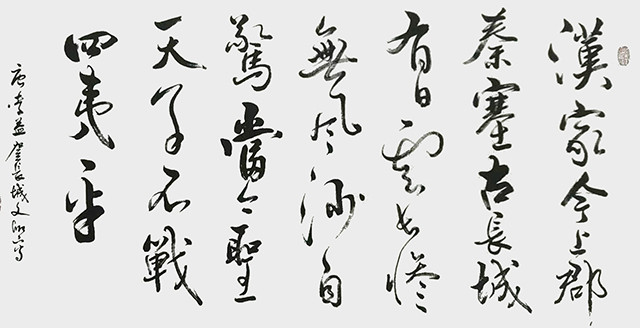 漢家今上郡
秦塞古長城
有日雲長慘
無風沙自
驚當今聖
天子不戰
四夷平
唐李益登長城文